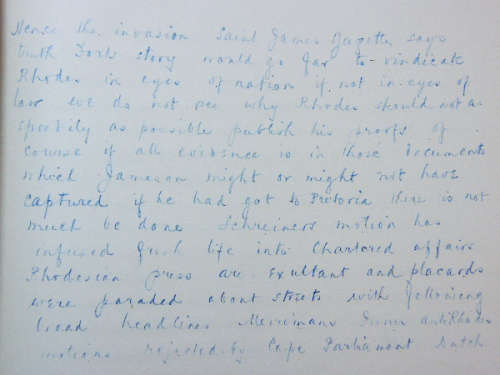 Hense the invasion Saint James Gazette says
truth Forts story would go far to vindicate
Rhodes in eyes of nation if not in eyes of
law but do not see why Rhodes should not as
speedily as possible publish his proofs of
course if all evidence is in those documents
which Jameson might or might not have
captured if he had got to Pretoria there is not
much be done Schreiners motion has
infused fresh life into Chartered affairs
Rhodesian press are exultant and placards
were paraded about streets with following
broad headlines Merrimans antiRhodes
motions rejected by Cape Parliament Dutch